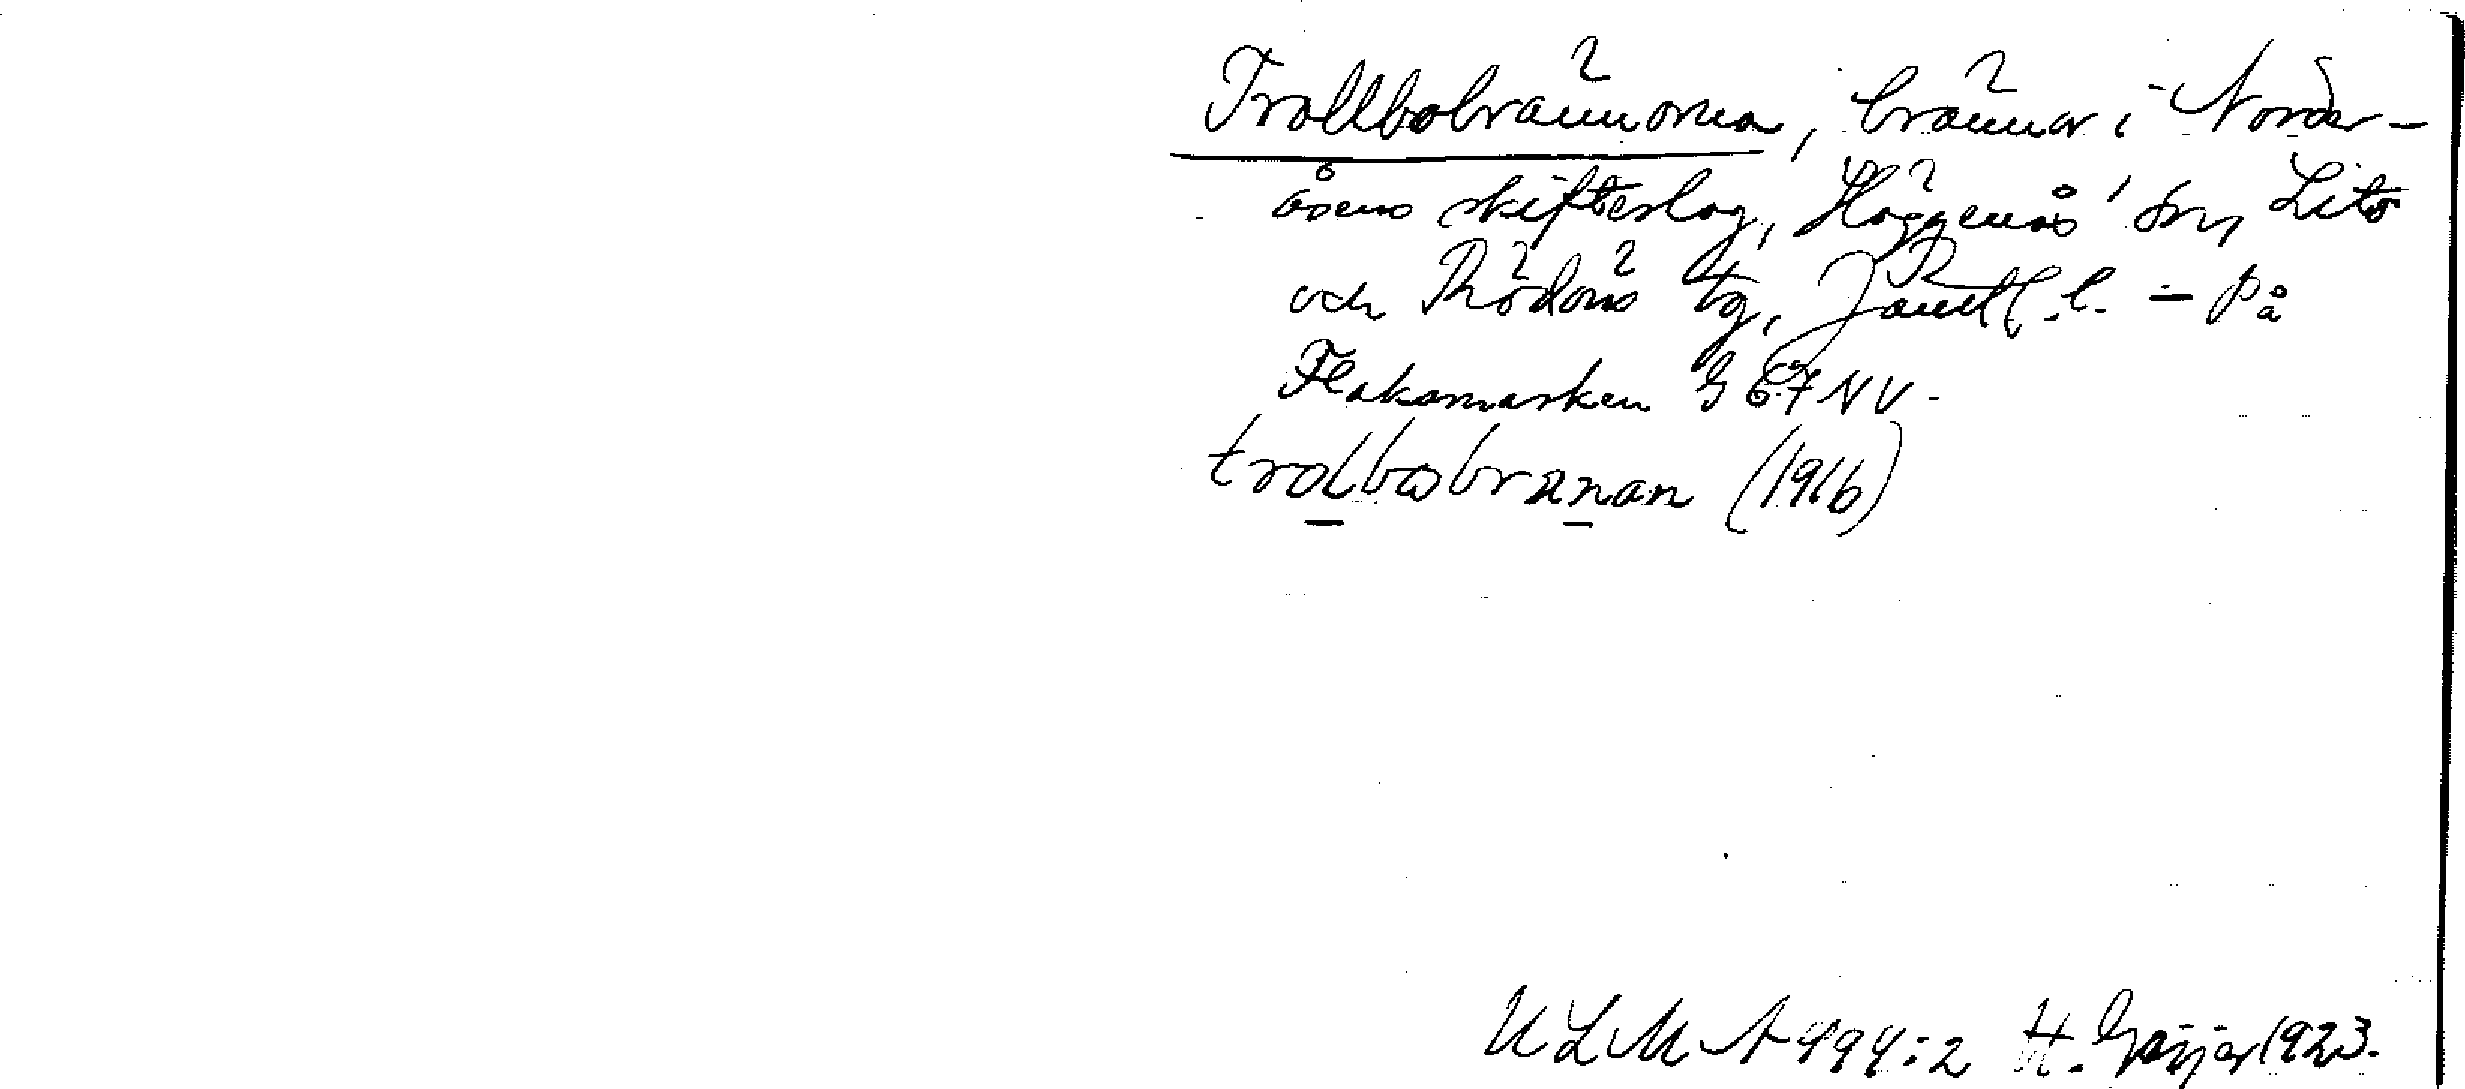 Trollbobrännorna, brännor i Norder-
åsens skifteslag, Häggenås' sn, Lits
och Rödöns tg, Jämtl. l. – På
Flakamarken G 67 NV.
trolbobrænan (1916)
ULMA 494:2 H. Geijer 1923.